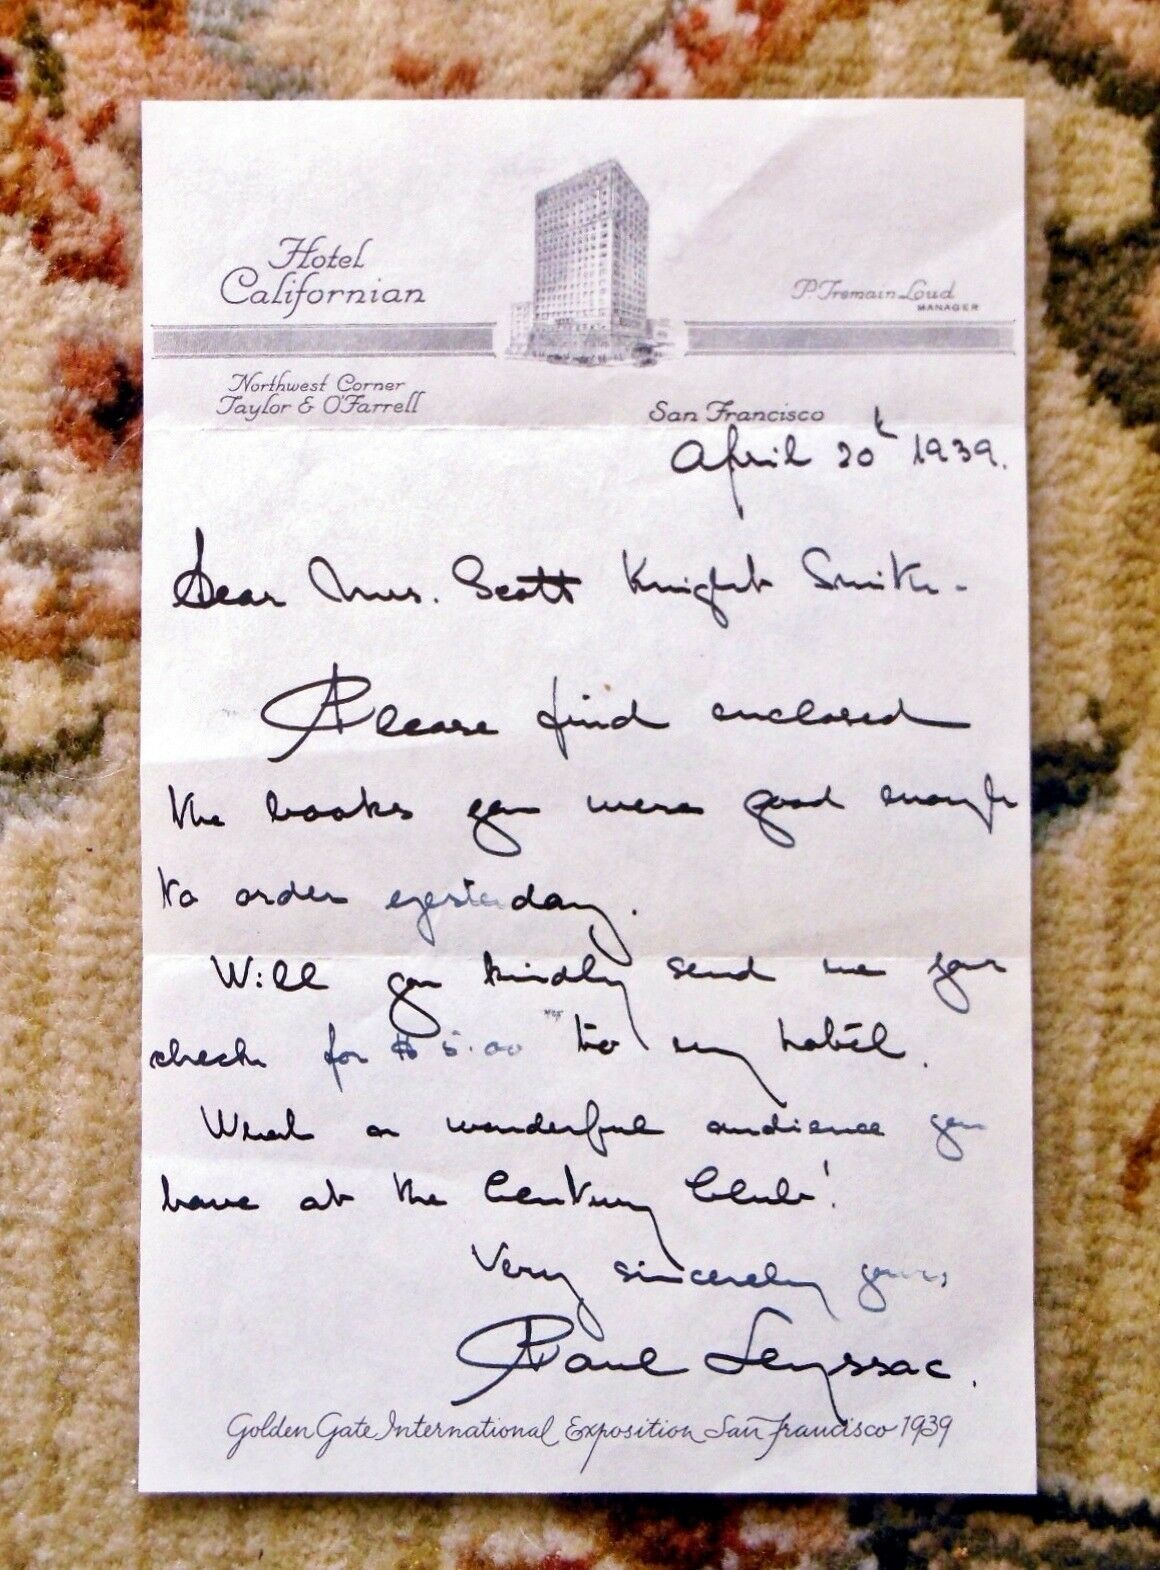 Hotel
Californian
P. Tremain Loud
MANAGER
Northwest Corner
Taylor & O'Farrell
San Francisco
April 20th 1939.
Dear Mrs. Scott Knight Smith -
Please find enclosed
the books you were good enough
to order yesterday.
Will you kindly send me your
check for $ 5.00 to my hotel.
What a wonderful audience you
have at the Century Club!
Very sincerely yours,
Paul Leyssac.
Golden Gate International Exposition San Francisco 1939